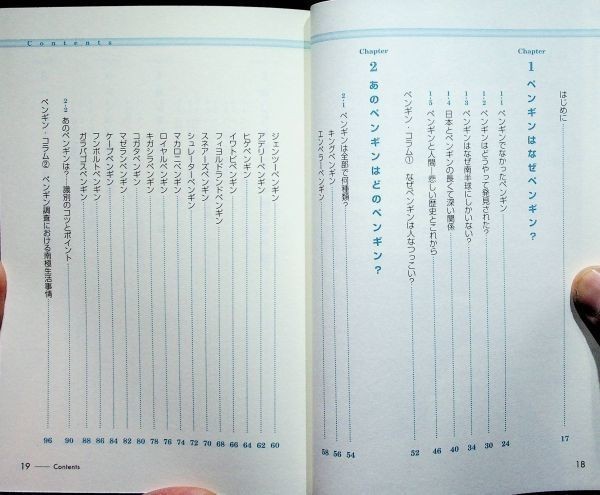 はじめに 17
Chapter
1 ペンギンはなぜペンギン？
1-1 ペンギンでなかったペンギン 24
1-2 ペンギンはどうやって発見された？ 30
1-3 ペンギンはなぜ南半球にしかいない？ 34
1-4 日本とペンギンの長くて深い関係 40
1-5 ペンギンと人間、悲しい歴史とこれから 46
ペンギン・コラム① なぜペンギンは人なつっこい？ 52
Chapter
2 あのペンギンはどのペンギン？
2-1 ペンギンは全部で何種類？ 54
キングペンギン 56
エンペラーペンギン 58
18
Contents
ジェンツーペンギン 60
アデリーペンギン 62
ヒゲペンギン 64
イワトビペンギン 66
フィヨルドランドペンギン 68
スネアーズペンギン 70
シュレーターペンギン 72
マカロニペンギン 74
ロイヤルペンギン 76
キガシラペンギン 78
コガタペンギン 80
マゼランペンギン 82
ケープペンギン 84
フンボルトペンギン 86
ガラパゴスペンギン 88
2-2 あのペンギンは？ 識別のコツとポイント 90
ペンギン・コラム② ペンギン調査における南極生活事情 96
19 Contents